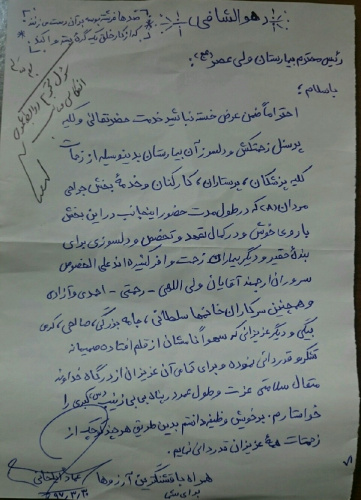 « هو الشافی »
صدها فرشته بوسه بر آن دست می‌زنند
کز کار خلق یک گره بسته وا کند
رئیس محترم بیمارستان ولی عصر (عج)
باسلام؛
احتراماً ضمن عرض خسته نباشید خدمت حضرتعالی و کلیه
پرسنل زحمتکش و دلسوز آن بیمارستان بدینوسیله از زحمات
کلیه پزشکان، پرستاران، کارکنان و خدمهٔ بخش جراحی
مردان که در طول مدت حضور اینجانب در این بخش
با روی خوش و در کمال تعهد و تخصص و دلسوزی برای
بندهٔ حقیر و دیگر بیماران زحمت وافر کشیده‌اند علی الخصوص
سروران ارجمند آقایان ولی اللهی - رحمتی - احدی و آزاده
و همچنین سرکاران خانمها سلطانی، چاپه بزرگی، صالحی، کرم
بیگی و دیگر عزیزانی که سهواً نامشان از قلم افتاده صمیمانه
تشکر و قدردانی نموده و برای تمامی آن عزیزان از درگاه خداوند
متعال سلامتی عزت و طول عمر در پناه بی بی زینب کبری را
خواستارم. بر خویش وظیفه دانستم بدین طریق هر چند کوچک از
زحمات همهٔ عزیزان قدردانی نمایم.
همراه با قشنگترین آرزوها
برای